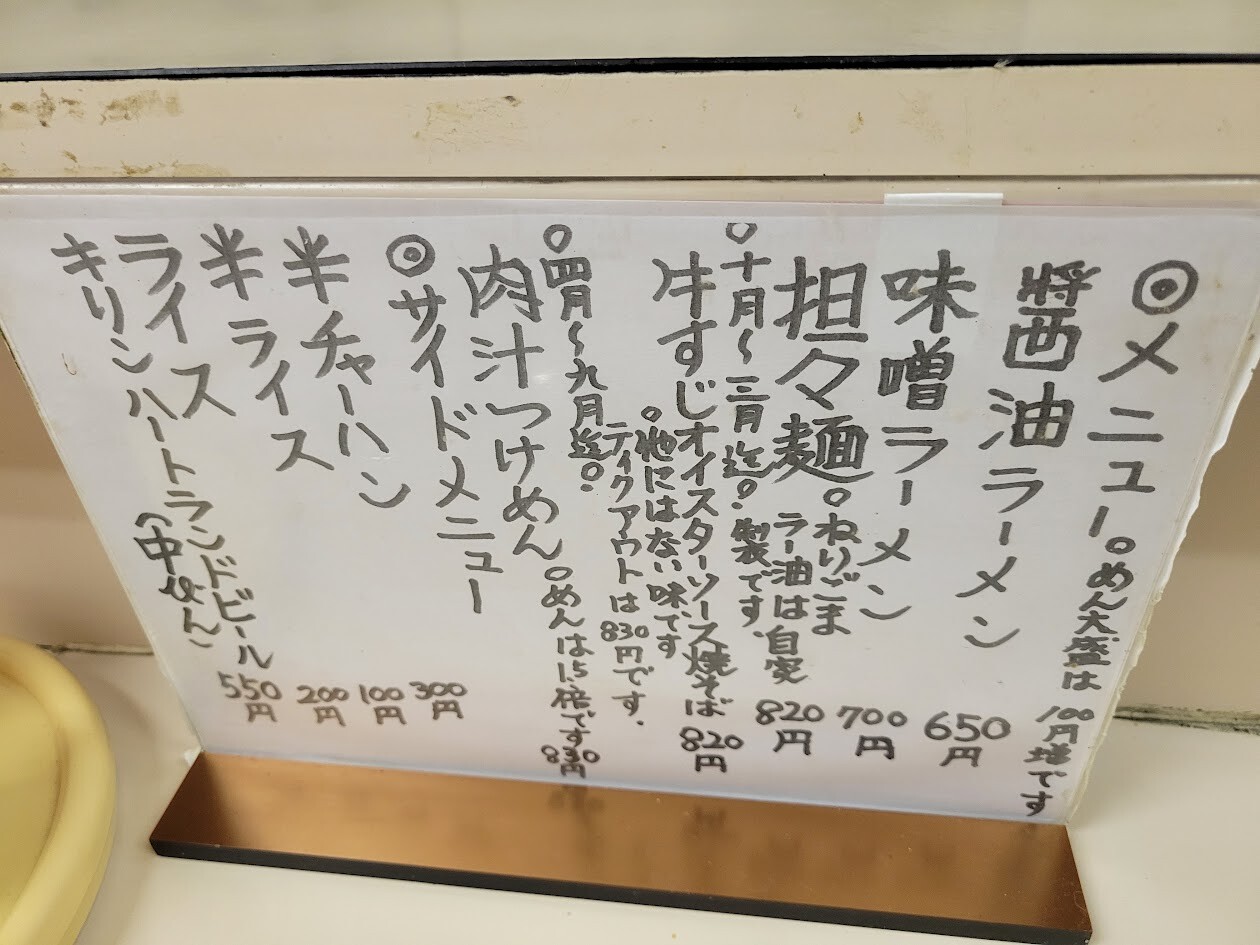 ◎メニュー。めん大盛は100円増です
醤油ラーメン 650円
味噌ラーメン 700円
担々麺。ねりごま
ラー油は自家
製です。 820円
○十月～三月迄。
牛すじオイスターソース焼そば 820円
○他にはない味です
テイクアウトは830円です.
○四月～九月迄。
肉汁つけめん。めんは1.5倍です 830円
◎サイドメニュー
半チャーハン 300円
半ライス 100円
ライス 200円
キリンハートランドビール
(中びん) 550円